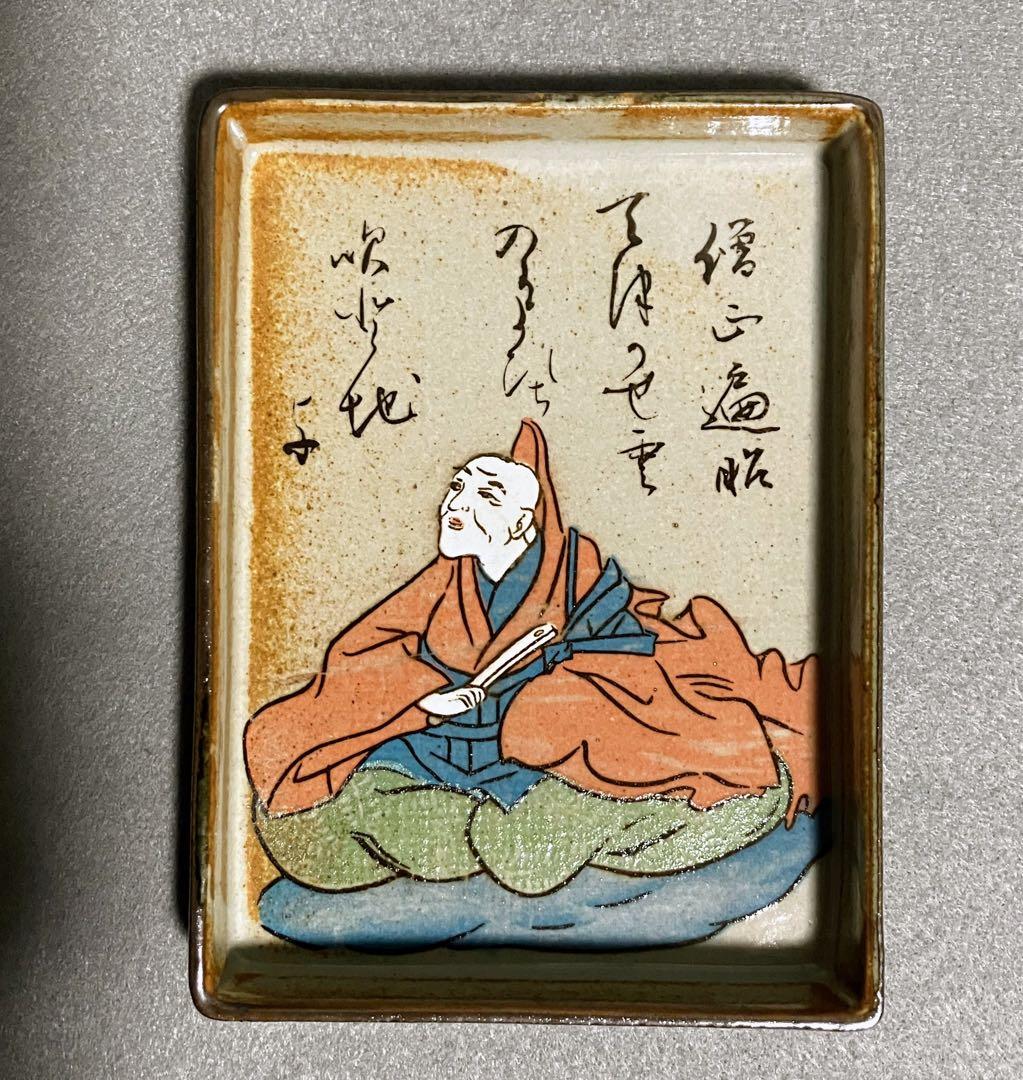 僧正遍昭
天津かせ雲
のかよひち
吹と地
よ